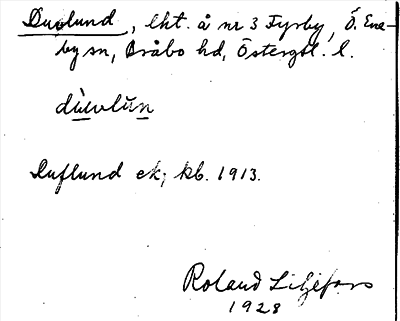 Duvlund, lht. å nr 3 Fyrby, Ö. Ene-
by sn, Bråbo hd, Östergöt. l.
dùvlŭn
Duflund ek; kb. 1913.
Roland Liljefors
1928